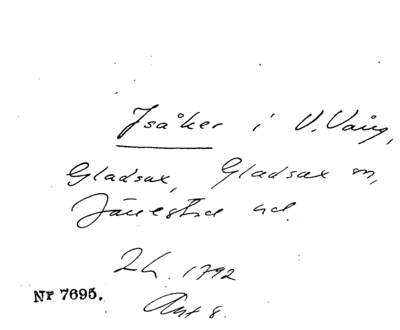 Isåker i V. Vång,
Gladsax, Gladsax sn,
Järrestad hd.
Lh. 1792
Nr 7695.
Akt 8.